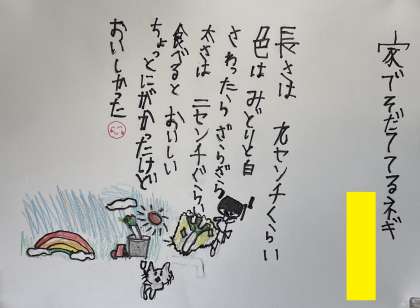 家でそだててるネギ
長さは 九センチくらい
色は みどりと白
さわったら ざらざら
太さは 二センチぐらい
食べると おいしい
ちょっとにがかったけど
おいしかった